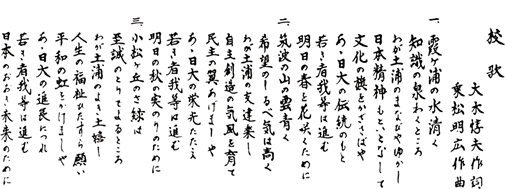 校歌
大木惇夫作詞
乗松明広作曲
一、霞ヶ浦の水清く
知識の泉わくところ
わが土浦のまなびやゆかし
日本精神もといとなして
文化の旗をかざさばや
あゝ日大の伝統のもと
若き者我等は進む
明日の春を花咲くために
二、筑波の山の雲青く
希望のしるべ気は高く
わが土浦の文達来し
自主創造の気風を育て
民主の翼あげましや
あゝ日大の栄光たたえ
若き者我等は進む
明日の秋の実のりのために
三、小松ヶ丘のさ緑は
至誠のとりでよるところ
わが土浦のよき土培し
人生の福祉ひたすら願い
平和の虹をかけましや
あゝ日大の進展につれ
若き者我等は進む
日本のおおき未来のために